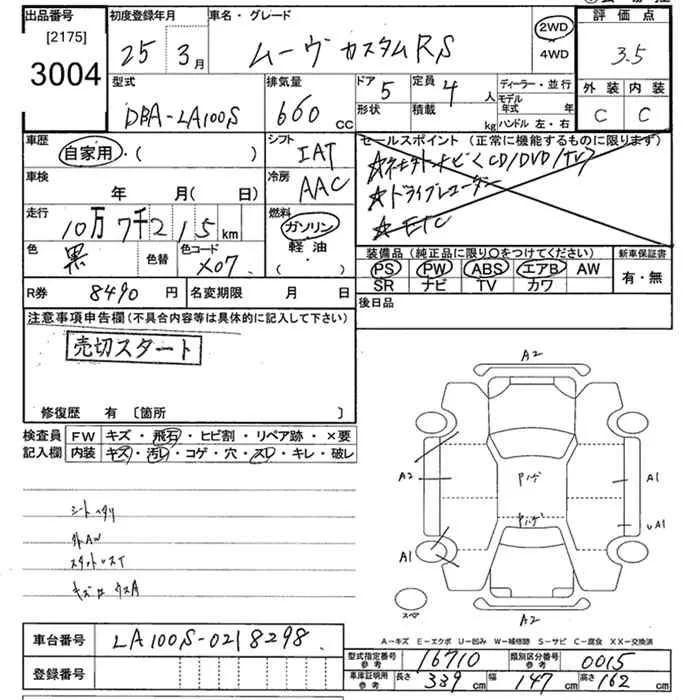 出品番号 初度登録年月 車名・グレード 評価点
[2175]
3004
25 3月 ムーヴ カスタム RS 2WD 4WD 3.5
型式 排気量 ドア 5 定員 4 人 ディーラー・並行 外装 内装
DBA-LA100S 660 cc 形状 積載 kg モデル年式 年 C C
ハンドル 左・右
車歴 シフト セールスポイント (正常に機能するものに限ります)
自家用・( ) IAT ☆ CD/DVD/TV
車検 冷房 ☆ドライブレコーダー
年 月( 日) AAC ☆ETC
走行 燃料
10万7千215km ガソリン
色 黒 色替 色コード X07 軽油・ ( )
装備品 (純正品に限り〇をつけてください) 新車保証書
PS PW ABS エアB AW 有・無
SR ナビ TV カワ
R券 8490 円 名変期限 月 日 後日品
注意事項申告欄(不具合内容等は具体的に記入して下さい)
売切スタート
修復歴 有 〔箇所 〕
検査員 FW キズ・飛石・ヒビ割・リペア跡・×要
記入欄 内装 キズ・汚レ・コゲ・穴・スレ・キレ・破レ
シートヘタリ
外AW
A2
A2 A1
A1 uA1
スペア
A2
A-キズ E-エクボ U-凹み W-補修跡 S-サビ C-腐食 XX-交換済
車台番号 LA100S-0218298
登録番号
型式指定番号 参考 16710 類別区分番号 参考 0015
車庫証明用 参考 長さ 339 cm 幅 147 cm 高さ 162 cm